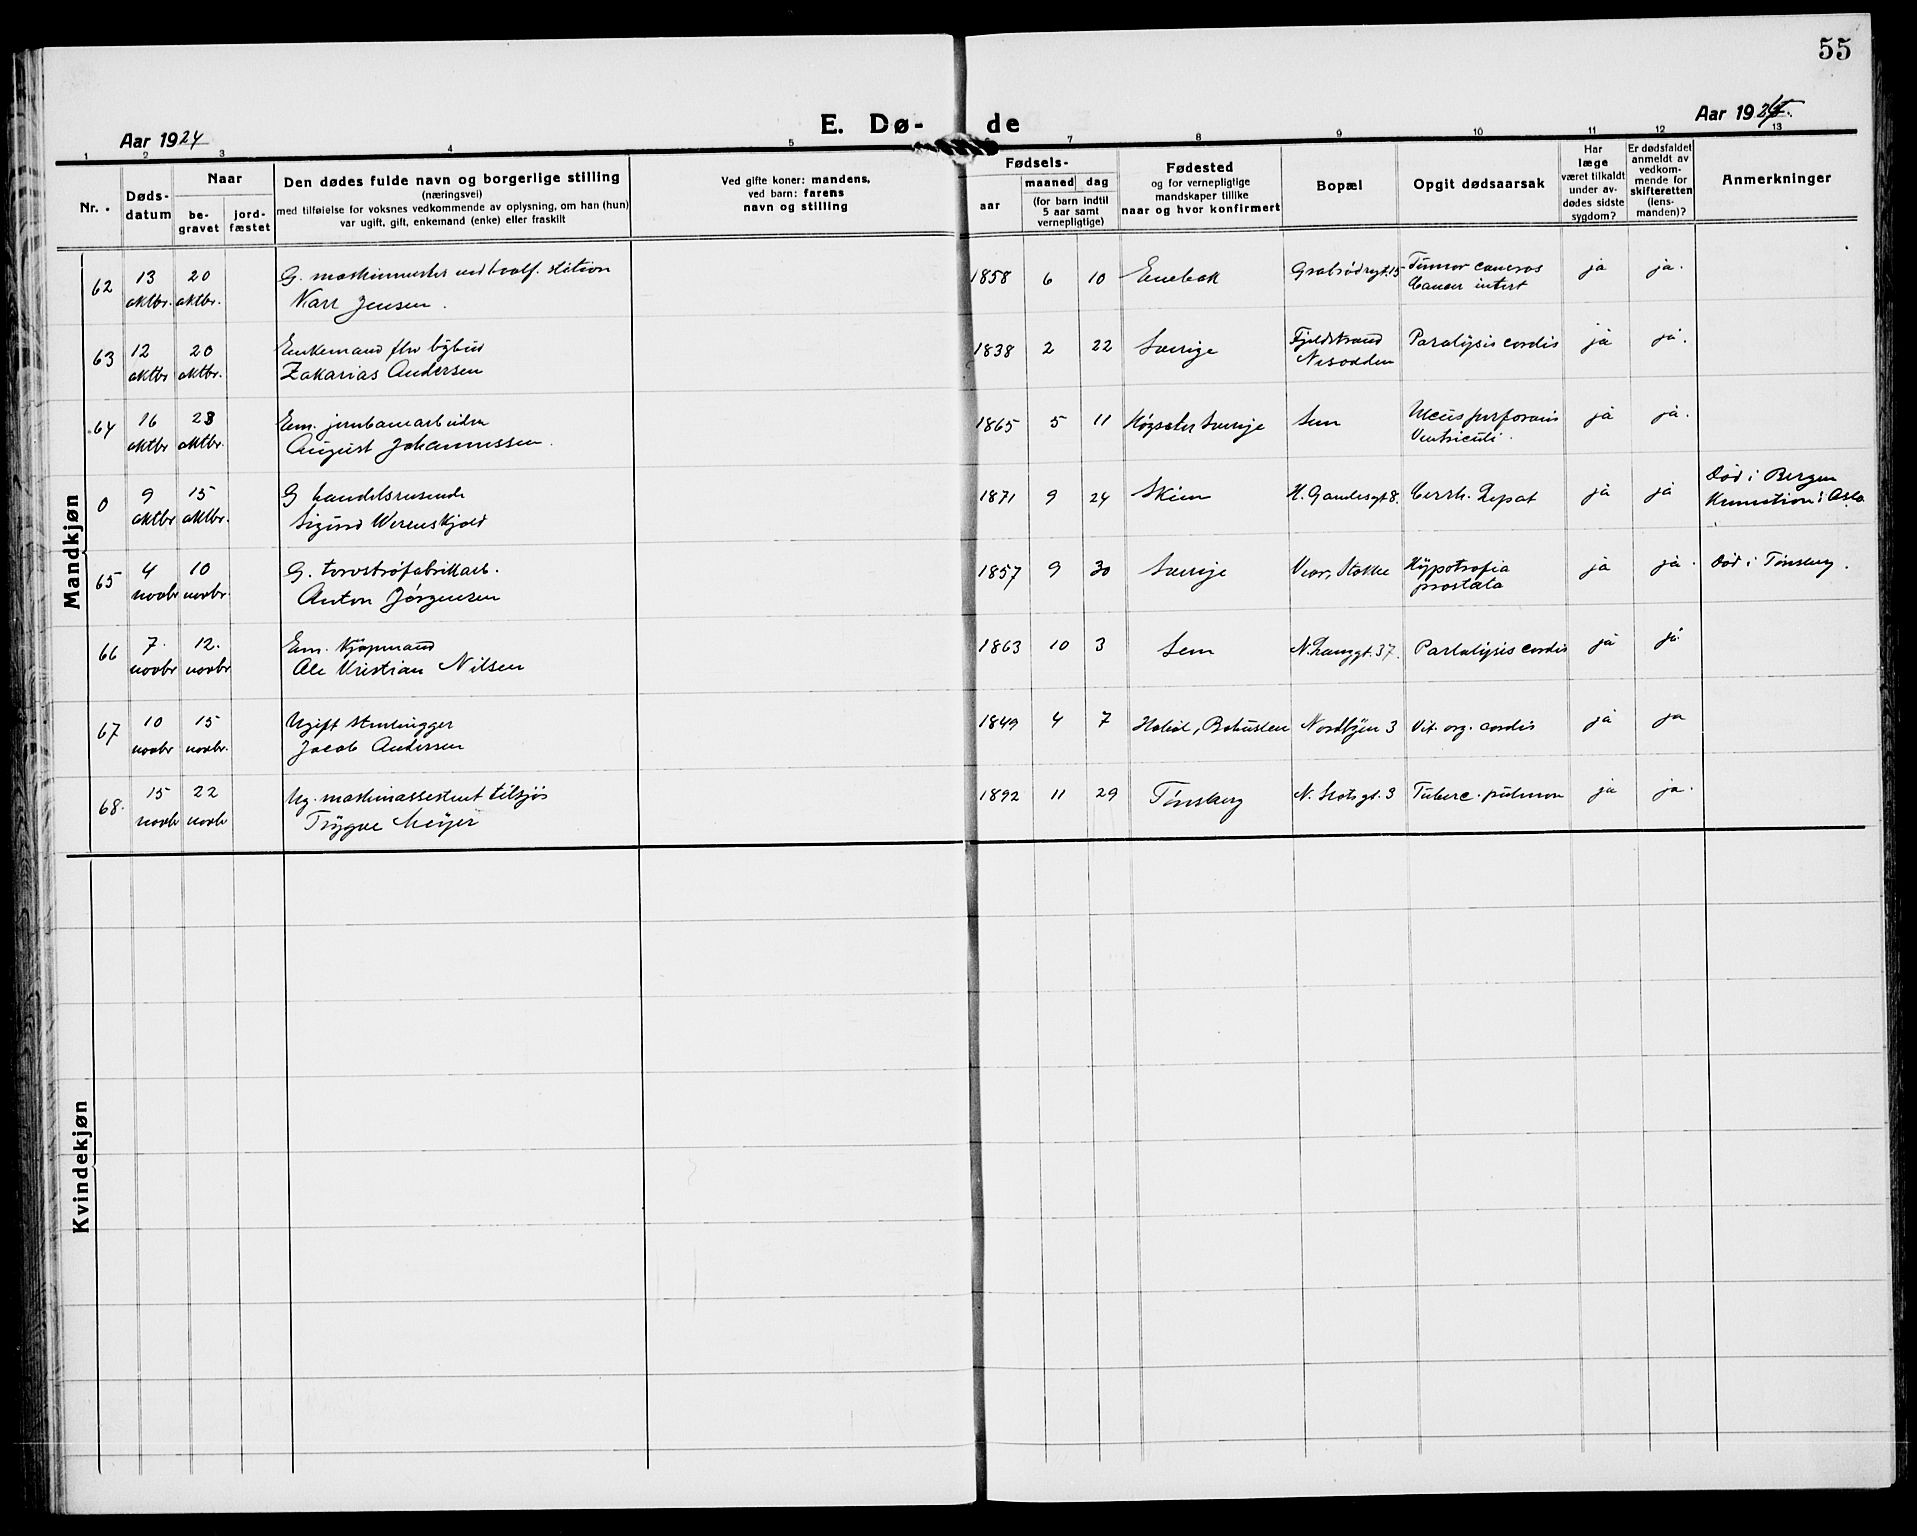 55
Aar 1924
E. Dø-
de
Aar 192
1 2 3 4 5 7 8 9 10 11 12 13
Nr.
Døds-
datum
Naar
be-
gravet
jord-
fæstet
Den dødes fulde navn og borgerlige stilling
(næringsvei)
med tilføielse for voksnes vedkommende av oplysning, om han (hun)
var ugift, gift, enkemand (enke) eller fraskilt
Ved gifte koner: mandens,
ved barn: farens
navn og stilling
Fødsels-
aar
maaned dag
(for barn indtil
5 aar samt
vernepligtige)
Fødested
og for vernepligtige
mandskaper tillike
naar og hvor konfirmert
Bopæl
Opgit dødsaarsak
Har
læge
været tilkaldt
under av-
dødes sidste
sygdom?
Er dødsfaldet
anmeldt av
vedkom-
mende for
skifteretten
(lens-
manden)?
Anmerkninger
Mandkjøn
62 13 20 G. maskinmester ved hvalf. station 1858 6 10 Enebak Tumor cancros ja ja.
oktbr. oktbr. Karl Jensen. Cancer intest
63 12 20 Enkemand fhv bybud 1838 2 22 Sverige Fjeldstrand Paralysis cordis ja ja.
oktbr oktbr. Zakarias Andersen Nesodden
64 16 23 Em. jernbanearbeider 1865 5 11 Høgsäter Sverige Sem Ulcus perforans ja ja.
oktbr oktbr. August Johannessen. Ventriculi.
0 9 15 G handelsreisende 1871 9 24 Skien H. Gamlesgt 8. Cerrh. Hepat ja ja Död i Bergen
oktbr oktbr. Sigurd Werenskjold Kremation i Oslo
65 4 10 G. torvstrøfabrikarb. 1857 9 30 Sverige Vear, Stokke Hypotrofia ja ja. Död i Tønsberg.
novbr novbr. Anton Jørgensen prostata
66 7. 12. Em. Kjøpmand 1863 10 3 Sem N. Langgt. 37. Parlalysis cordis ja ja
novbr novbr Ole Kristian Nilsen
67 10 15 Ugift stenhugger 1849 4 7 Nordbyen 3 Vit. org. cordis ja ja
novbr novbr. Jacob Andersen
68. 15 22 Ug. maskinassistent tilsjøs 1892 11 29 Tønsberg N. Slotsgt. 3 Tuberc. pulmon ja ja.
novb novb Trygve Meyer
Kvindekjøn